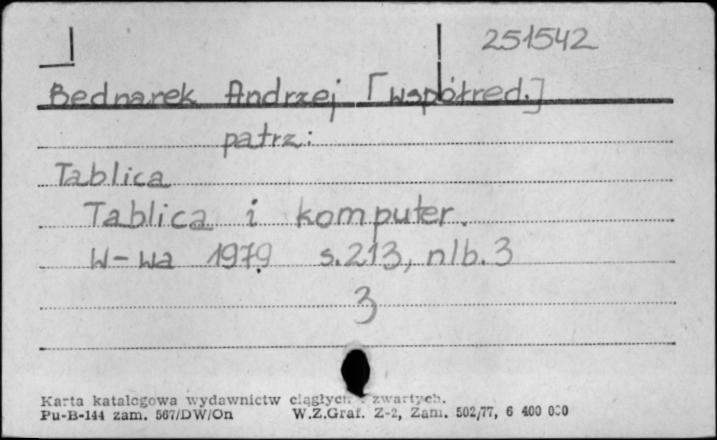 251542
Bednarek Andrzej [współred.]
patrz:
Tablica
Tablica i komputer.
W-wa 1979 s.213, nlb.3
3
Karta katalogowa wydawnictw ciągłych i zwartych.
Pu-B-144 zam. 567/DW/On W.Z.Graf. Z-2, Zam. 502/77, 6 400 000